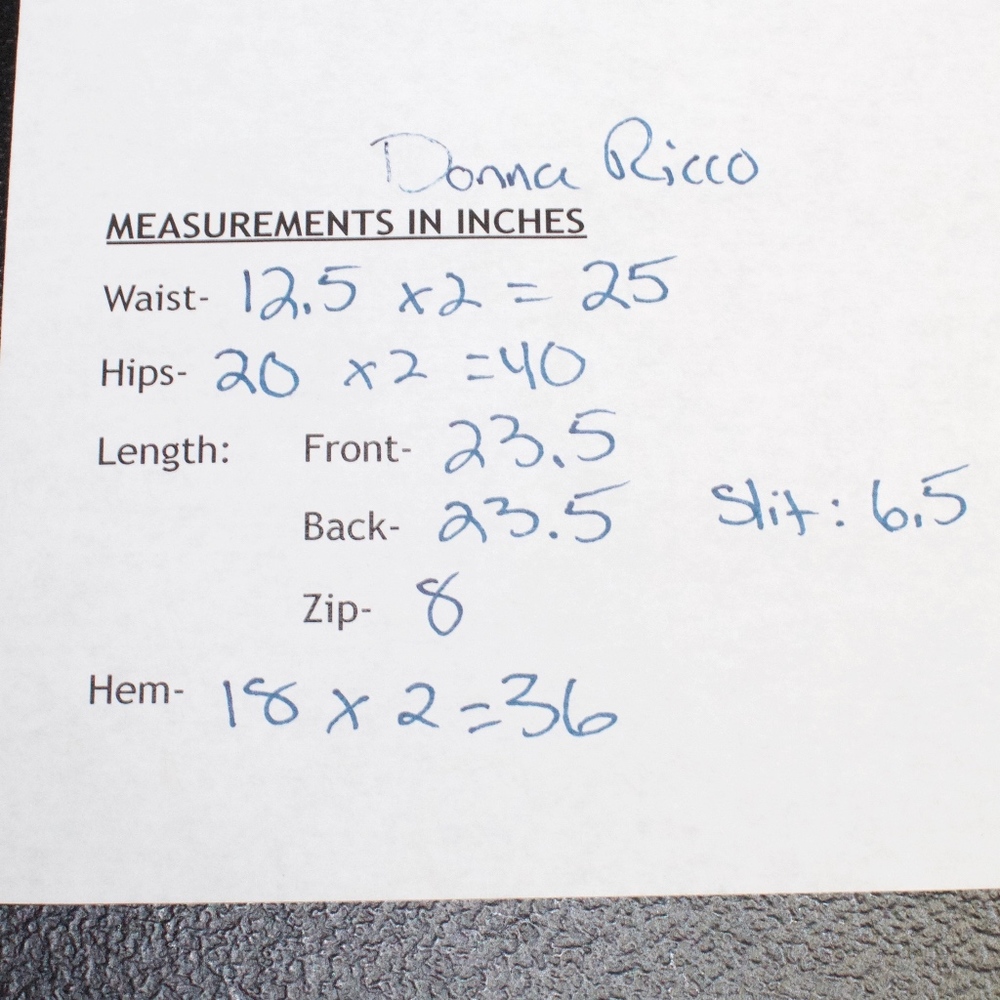 Donna Ricco
MEASUREMENTS IN INCHES
Waist- 12.5 x2 = 25
Hips- 20 x2 =40
Length: Front- 23.5
Back- 23.5 Slit: 6.5
Zip- 8
Hem- 18 x 2=36